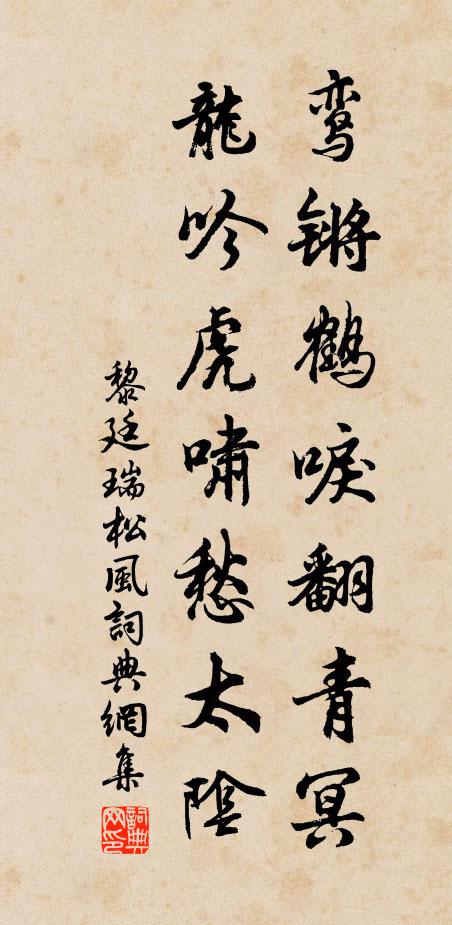 鸾锵鶴唳翻青冥
龍吟虎嘯愁太陰
黎廷瑞松風詞典網集
詞典网印